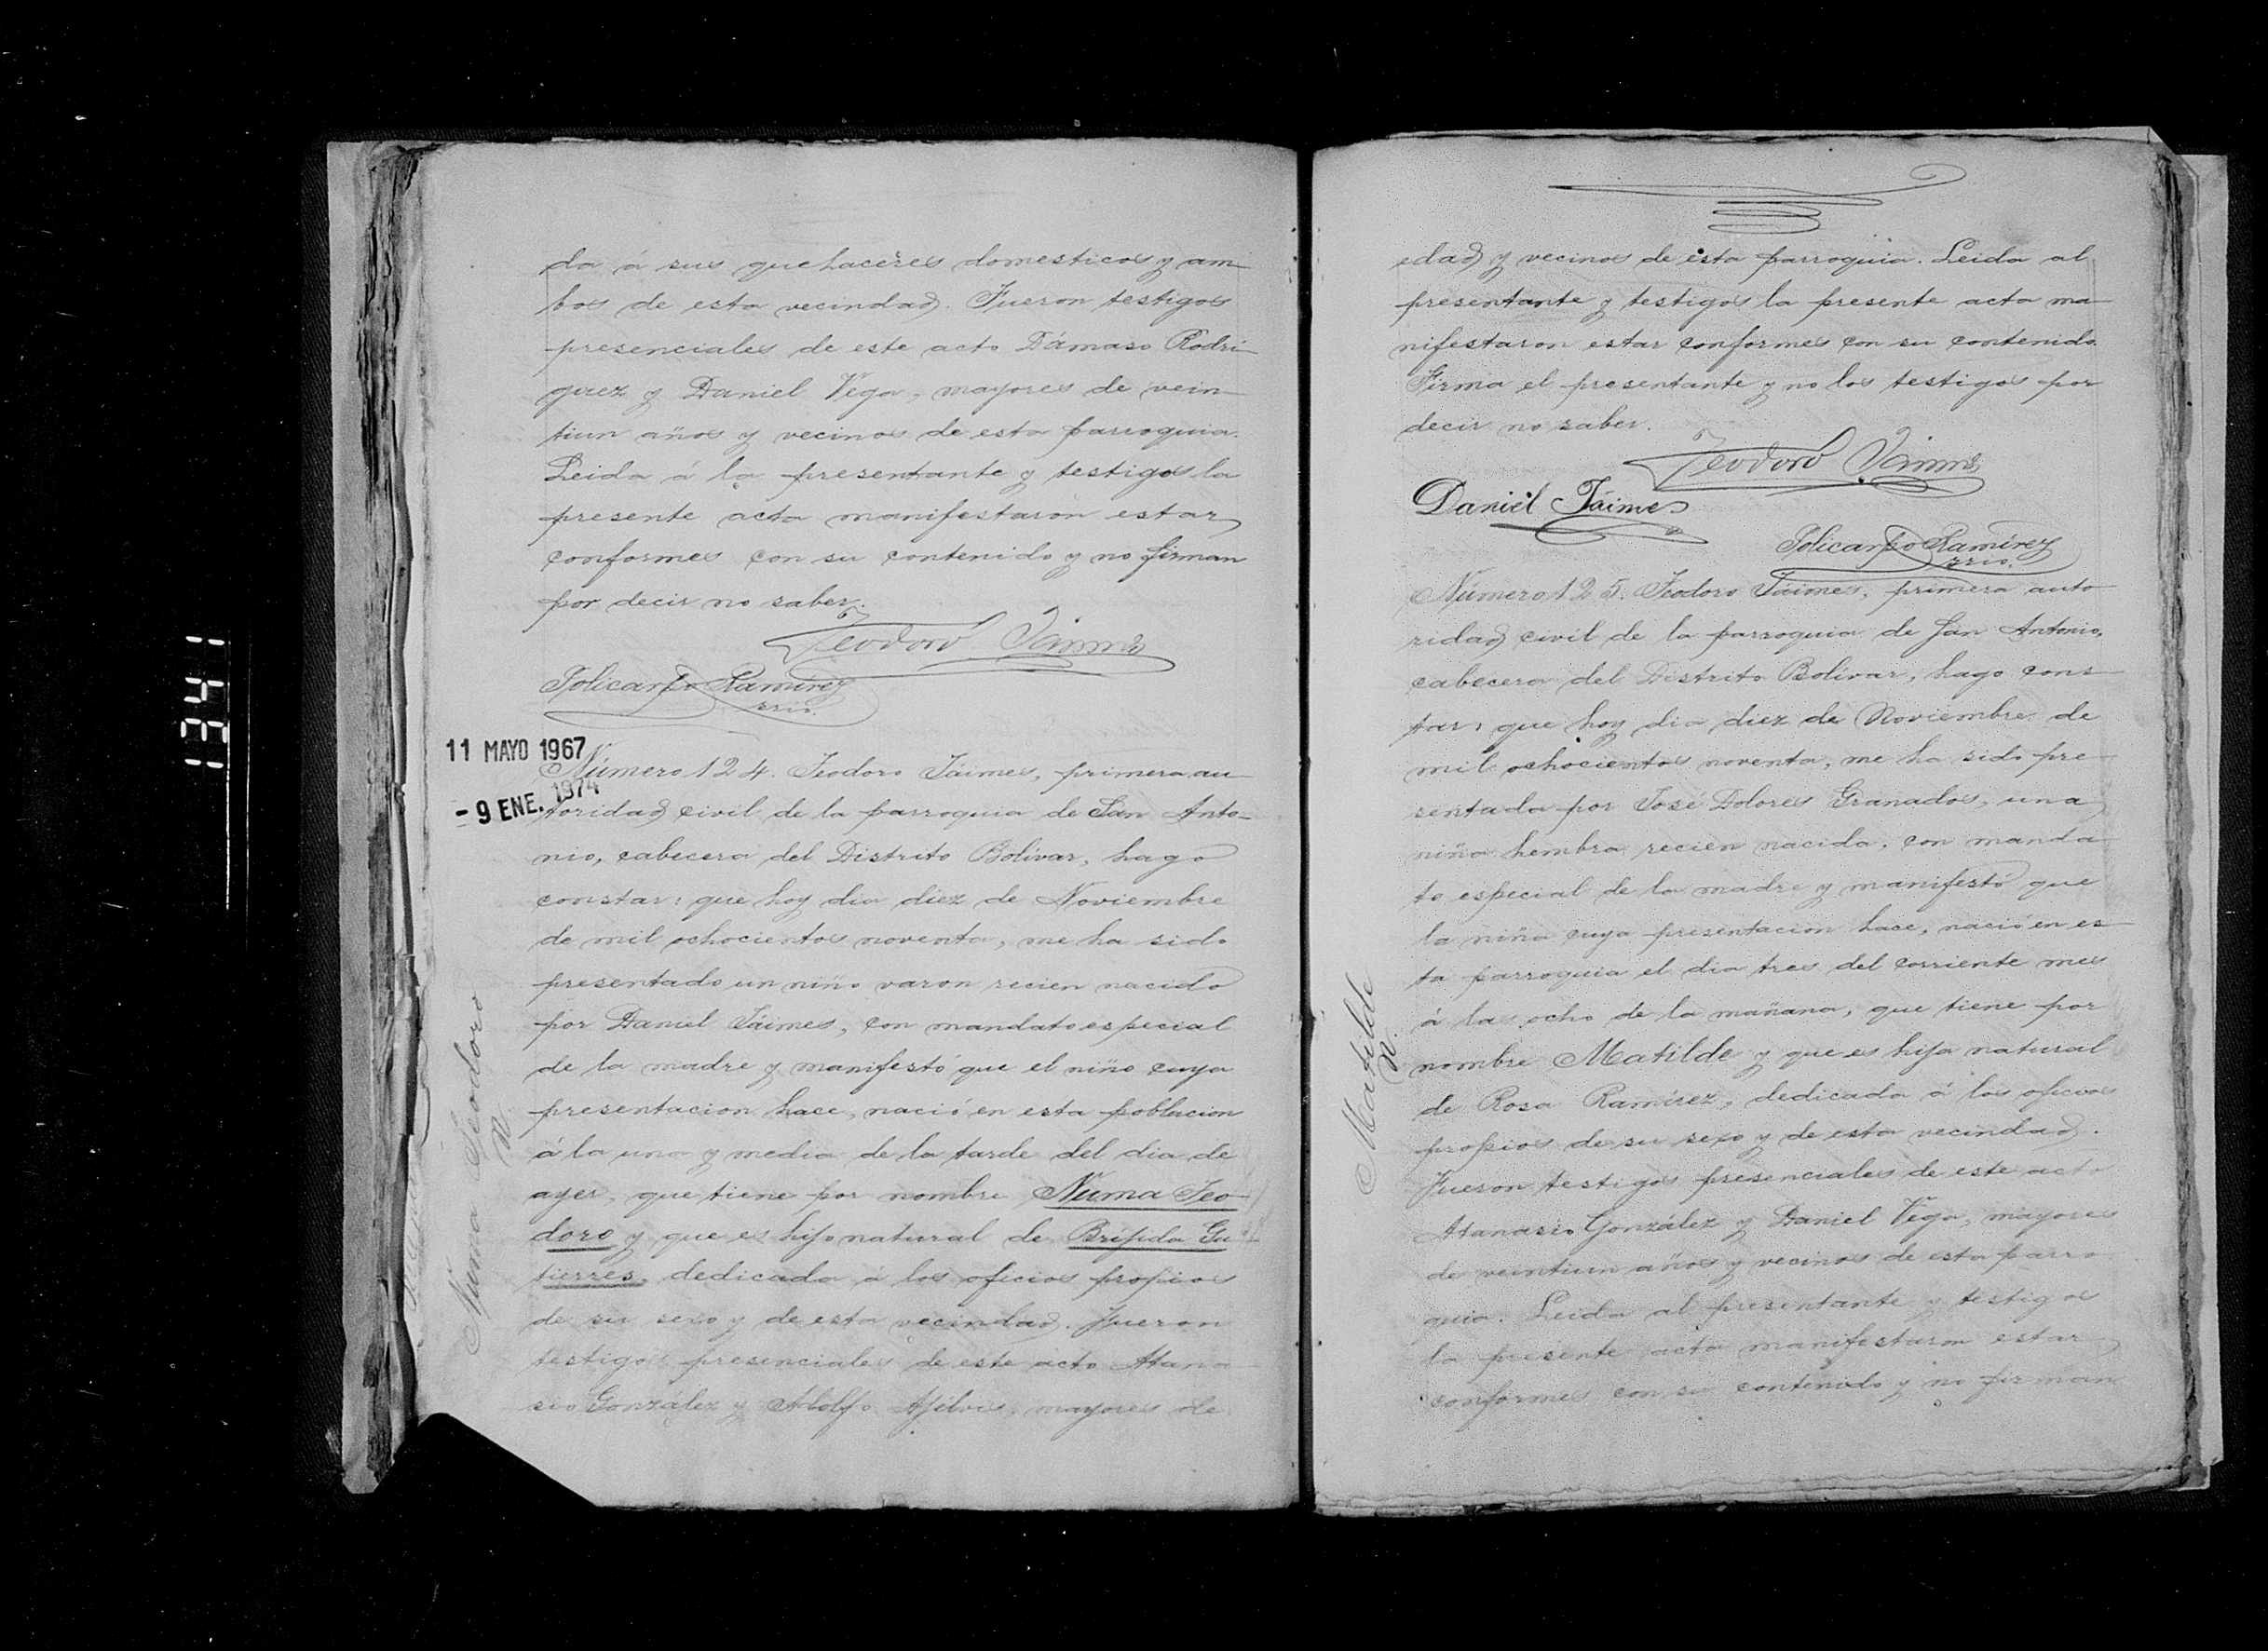 da á sus quehaceres domesticos y am-
bos de esta vecindad. Fueron testigos
presenciales de este acto Dámaso Rodri-
guez y Daniel Vega, mayores de vein-
tiun años y vecinos de esta parroquia.
Leida á la presentante y testigos la
presente acta manifestaron estar
conformes con su contenido y no firman
por decir no saber.
Teodoro Jaimes
Policarpo Ramírez
srio.
11 MAYO 1967
- 9 ENE. 1974
Numa Teodoro
N.
Número 124. Teodoro Jáimes, primera au-
toridad civil de la parroquia de San Anto-
nio, cabecera del Distrito Bolívar, hago
constar: que hoy dia diez de Noviembre
de mil ochocientos noventa, me ha sido
presentado un niño varon recien nacido
por Daniel Jáimes, con mandato especial
de la madre y manifestó que el niño cuya
presentacion hace, nació en esta poblacion
á la una y media de la tarde del dia de
ayer, que tiene por nombre Numa Teo-
doro y que es hijo natural de Bríjida Gu-
tierres, dedicada á los oficios propios
de su sexo y de esta vecindad. Fueron
testigos presenciales de este acto Atana-
sio González y Adolfo mayores de
edad y vecinos de esta parroquia. Leida al
presentante y testigos la presente acta ma-
nifestaron estar conformes con su contenido.
Firma el presentante y no los testigos por
decir no saber.
Teodoro Jaimes
Daniel Jáimes
Policarpo Ramírez
srio.
Matilde
N.
Número 125. Teodoro Jáimes, primera auto-
ridad civil de la parroquia de San Antonio,
cabecera del Distrito Bolívar, hago cons-
tar: que hoy dia diez de Noviembre de
mil ochocientos noventa, me ha sido pre-
sentada por José Dolores Granados, una
niña hembra recien nacida, con manda-
to especial de la madre y manifestó que
la niña cuya presentacion hace, nació en es-
ta parroquia el dia tres del corriente mes
á las ocho de la mañana, que tiene por
nombre Matilde y que es hija natural
de Rosa Ramírez, dedicada á los oficios
propios de su sexo y de esta vecindad.
Fueron testigos presenciales de este acto
Atanasio González y Daniel Vega, mayores
de veintiun años y vecinos de esta parro-
quia. Leida al presentante y testigos
la presente acta manifestaron estar
conformes con su contenido y no firman
1341